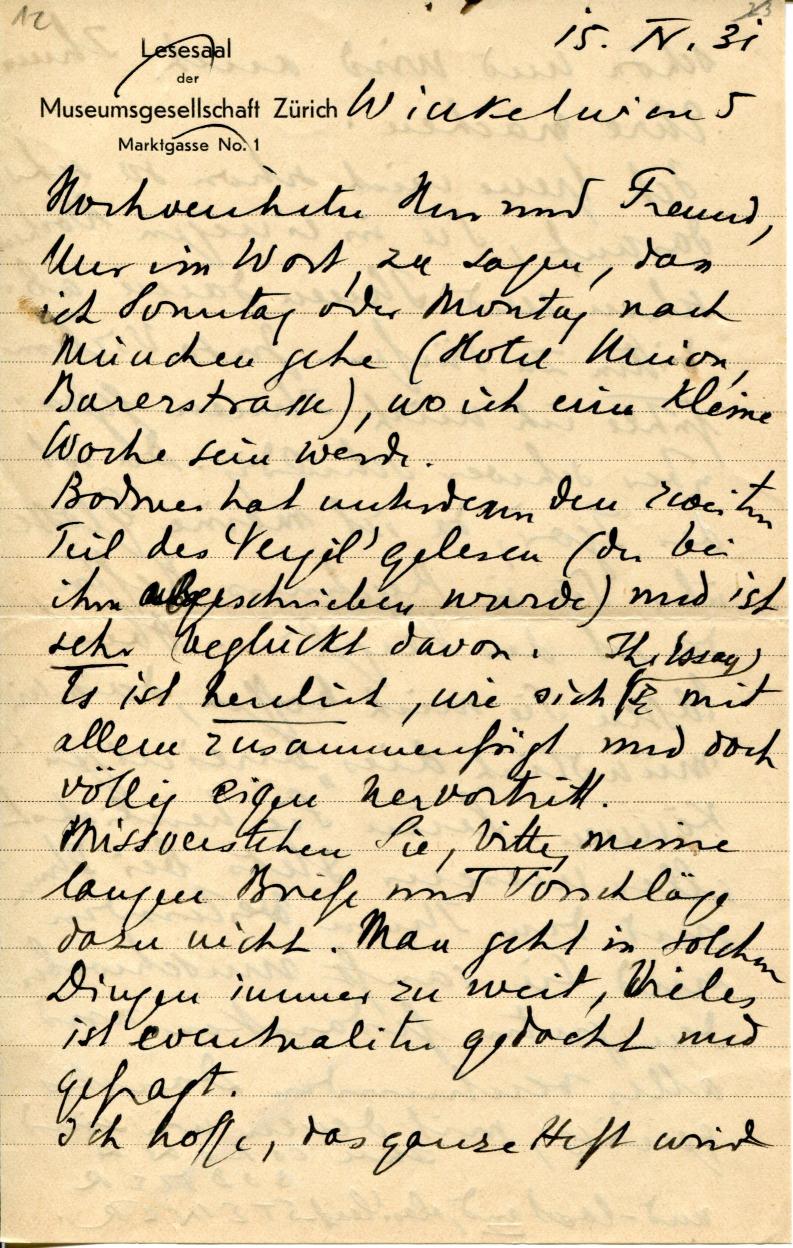 12
23
15. IV. 31
Lesesaal
der
Museumsgesellschaft Zürich
Marktgasse No. 1
Winkelwiese 5
Hochverehrter Herr und Freund,
Nur ein Wort, zu sagen, dass
ich Sonntag oder Montag nach
München gehe (Hotel Union,
Barerstrasse), wo ich eine kleine
Woche sein werde.
Bodmer hat unterdessen den zweiten
Teil des Vergil' gelesen (der bei
ihm abgeschrieben wurde) und ist
sehr beglückt davon.
Ihr Essay
Es ist herrlich, wie sich er mit
allem zusammenfügt und doch
völlig eigen hervortritt.
Missverstehen Sie, bitte, meine
langen Briefe und Vorschläge
dazu nicht. Man geht in solchen
Dingen immer zu weit, Vieles
ist eventualiter gedacht und
gefragt.
Ich hoffe, das ganze Heft wird